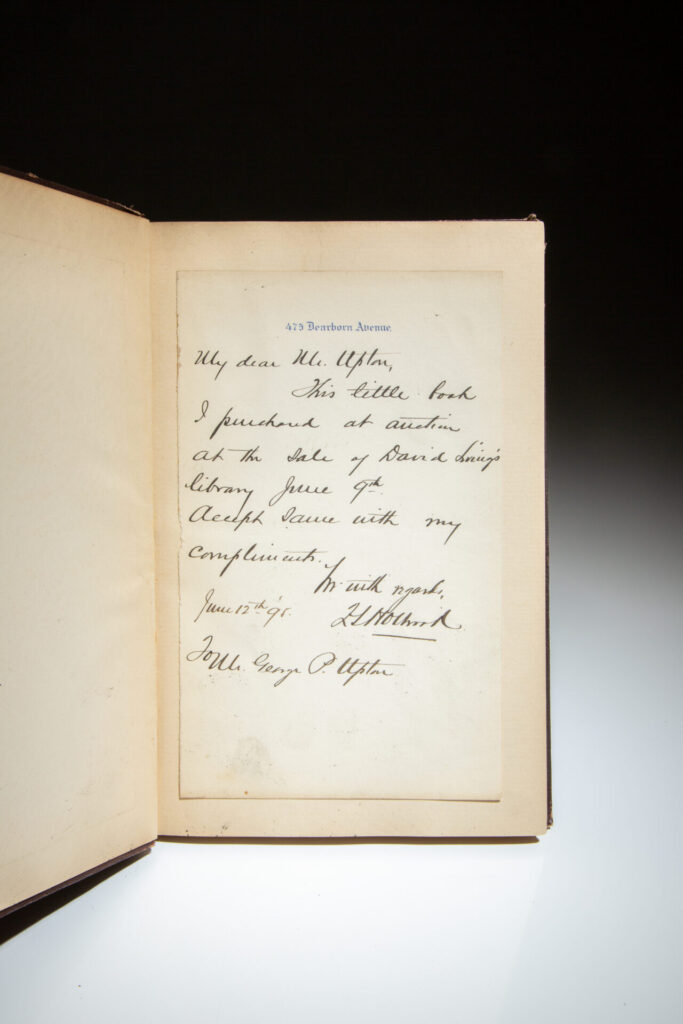 475 Dearborn Avenue.
My dear Mr. Upton,
This little book
I purchased at auction
at the sale of David Swing's
library June 9th.
Accept same with my
compliments.
with regards,
June 12th '95.
Holbrook
To Mr. George P. Upton